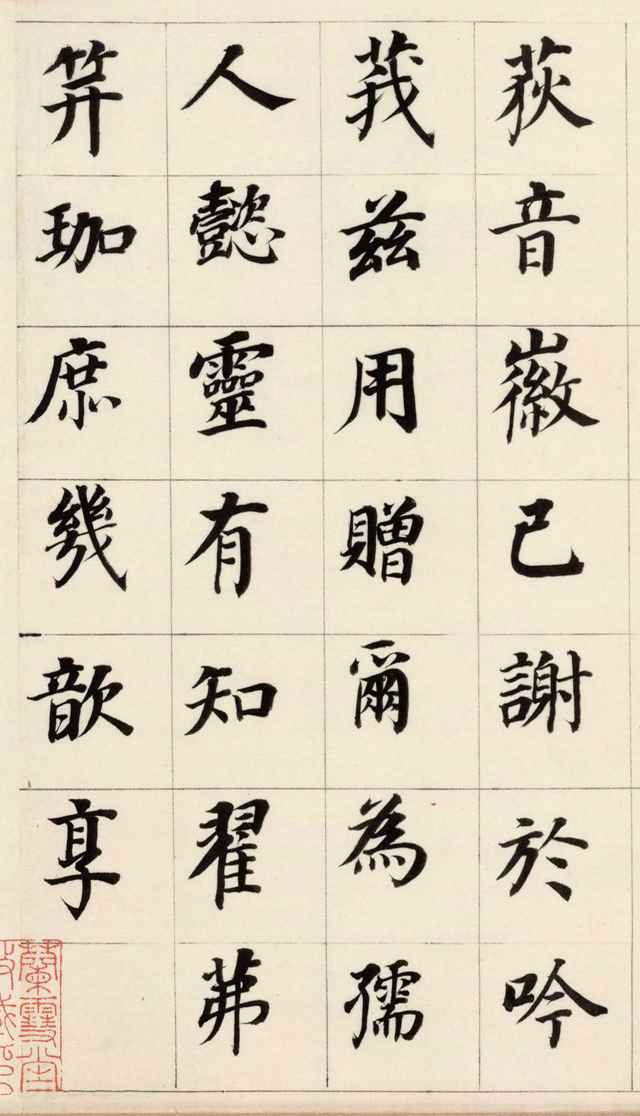 荻音徽已謝於吟
莪茲用贈爾為孺
人懿靈有知翟茀
笄珈庶幾歆享
蘭雪堂